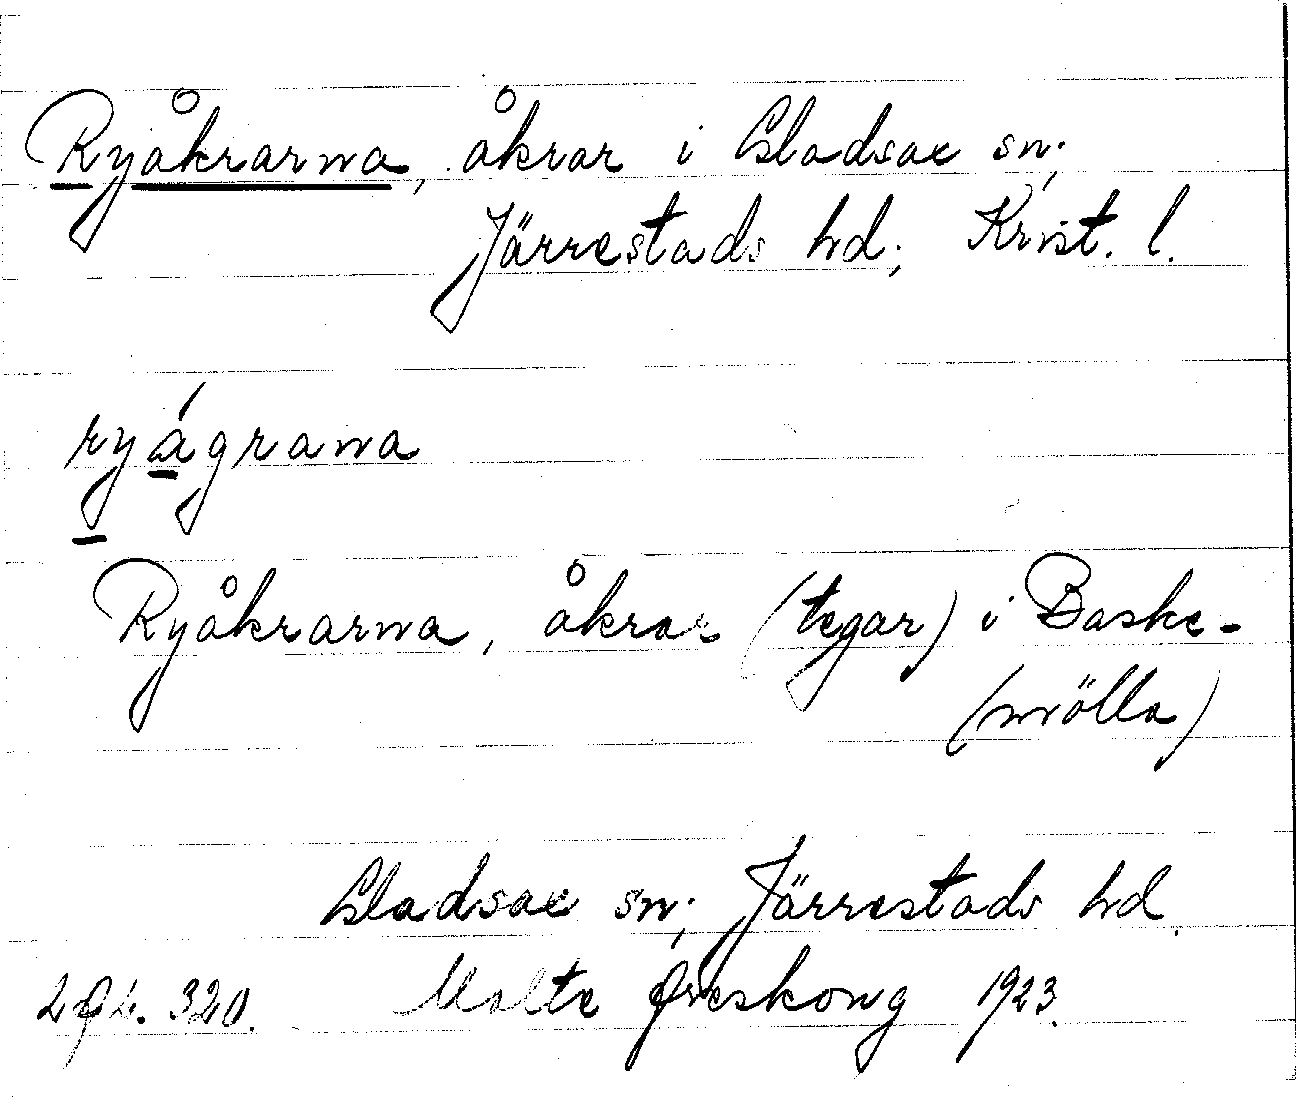 Ryåkrarna, åkrar i Gladsax sn;
Järrestads hd; Krist. l.
ryágrana
Ryåkrarna, åkrar (tegar) i Baske-
(mölla)
Gladsax sn; Järrestads hd.
320. Malte 1923.